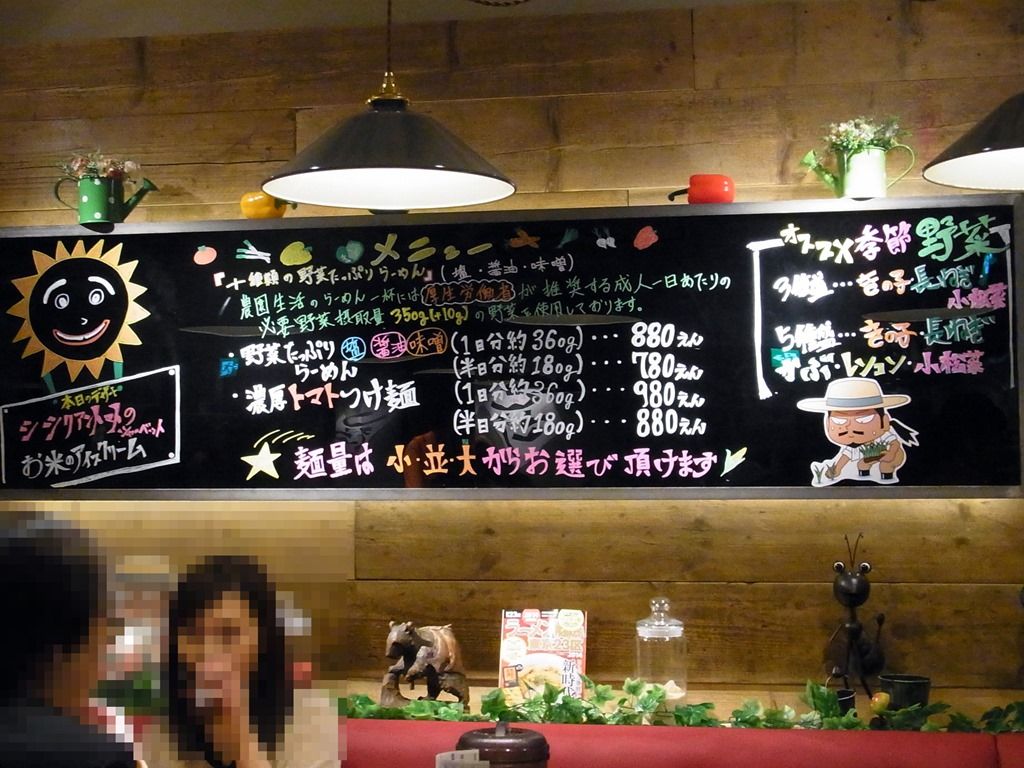 メニュー
『十種類の野菜たっぷりらーめん』(塩・醤油・味噌)
農園生活のらーめん一杯には厚生労働省が推奨する成人一日あたりの
必要野菜摂取量350g(+10g)の野菜を使用しております。
・野菜たっぷり 塩 醤油 味噌 (1日分約360g)・・・880えん
らーめん (半日分約180g)・・・780えん
・濃厚トマトつけ麺 (1日分約360g)・・・980えん
(半日分約180g)・・・880えん
麺量は 小・並・大からお選び頂けます
本日のデザート
シシリアントマトの
シャーベット
お米のアイスクリーム
オススメ季節野菜
3種盛…きの子・長ねぎ
小松菜
5種盛…きの子・長ねぎ
レンコン・小松菜
ラーメン
東京23区
新時代